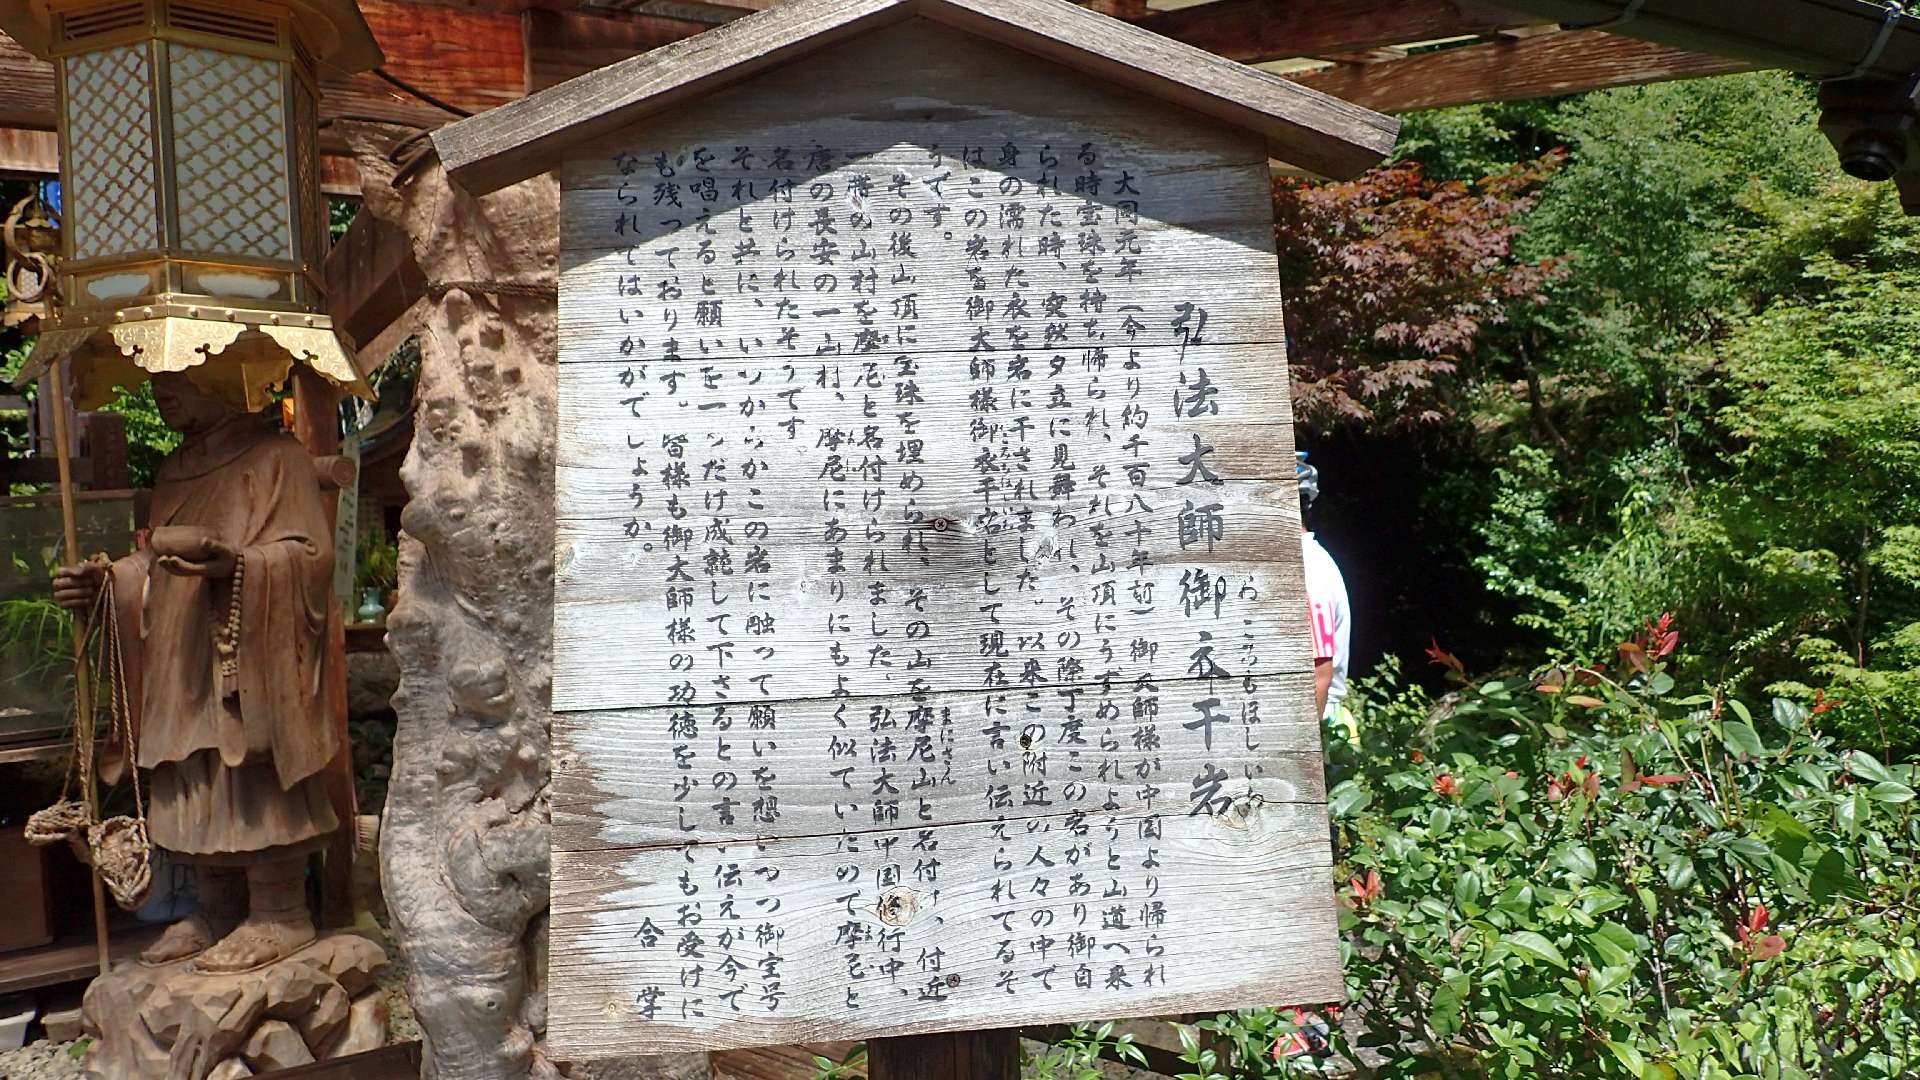 弘法大師御衣干岩
おころもほしいわ
大同元年(今より約千百八十年前)御大師様が中国より帰られ
る時宝珠を持ち帰られ、それを山頂にうずめられようと山道へ来
られた時、突然夕立に見舞われ、その際丁度この岩があり御自
身の濡れた衣を岩に干されました。以来この附近の人々の中で
はこの岩を御大師様御衣干岩として現在に言い伝えられてるそ
うです。
その後山頂に宝珠を埋められ、その山を摩尼山と名付け、付近
まにさん
一帯の山村を摩尼と名付けられました。弘法大師中国修行中、
唐の長安の一山村、摩尼にあまりにもよく似ていためで摩尼と
名付けられたそうです
それと共に、いつからかこの岩に触って願いを想いつつ御宝号
を唱えると願いを一つだけ成就して下さるとの言い伝えが今で
も残っております。皆様も御大師様の功徳を少しでもお受けに
なられてはいかがでしょうか。
合掌